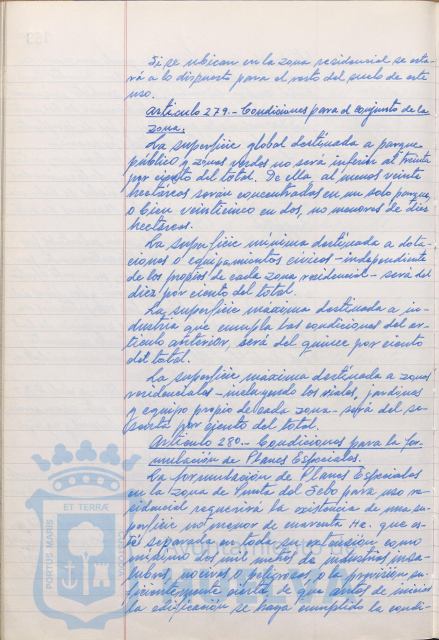 Si se ubican en la zona residencial se esta-
rá a lo dispuesto para el resto del suelo de este
uso.
Artículo 279.- Condiciones para el conjunto de la
zona.
La superficie global destinada a parque
público y zonas verdes no será inferior al treinta
por ciento del total. De ella al menos veinte
hectáreas serán concentradas en un solo parque,
o bien veinticinco en dos, no menores de diez
hectáreas.
La superficie mínima destinada a dota-
ciones o equipamientos cívicos - independiente
de los propios de cada zona residencial - será del
diez por ciento del total.
La superficie máxima destinada a in-
dustria que cumpla las condiciones del ar-
tículo anterior, será del quince por ciento
del total.
La superficie máxima destinada a zonas
residenciales - incluyendo los viales, jardines
y equipo propio de cada zona - será del se-
senta por ciento del total.
Artículo 280.- Condiciones para la for-
mulación de Planes Especiales.
La formulación de Planes Especiales
en la zona de Punta del Sebo para uso re-
sidencial requerirá la existencia de una su-
perficie no menor de cuarenta Ha. que es-
té separada en toda su extensión como
mínimo dos mil metros de industrias insa-
lubres, nocivas o peligrosas, o la previsión su-
ficientemente cierta de que antes de iniciar
la edificación se haya cumplido la condi-
PORTUS MARIS
ET TERRÆ
CUSTODIA
Ayuntamiento de
HUELVA